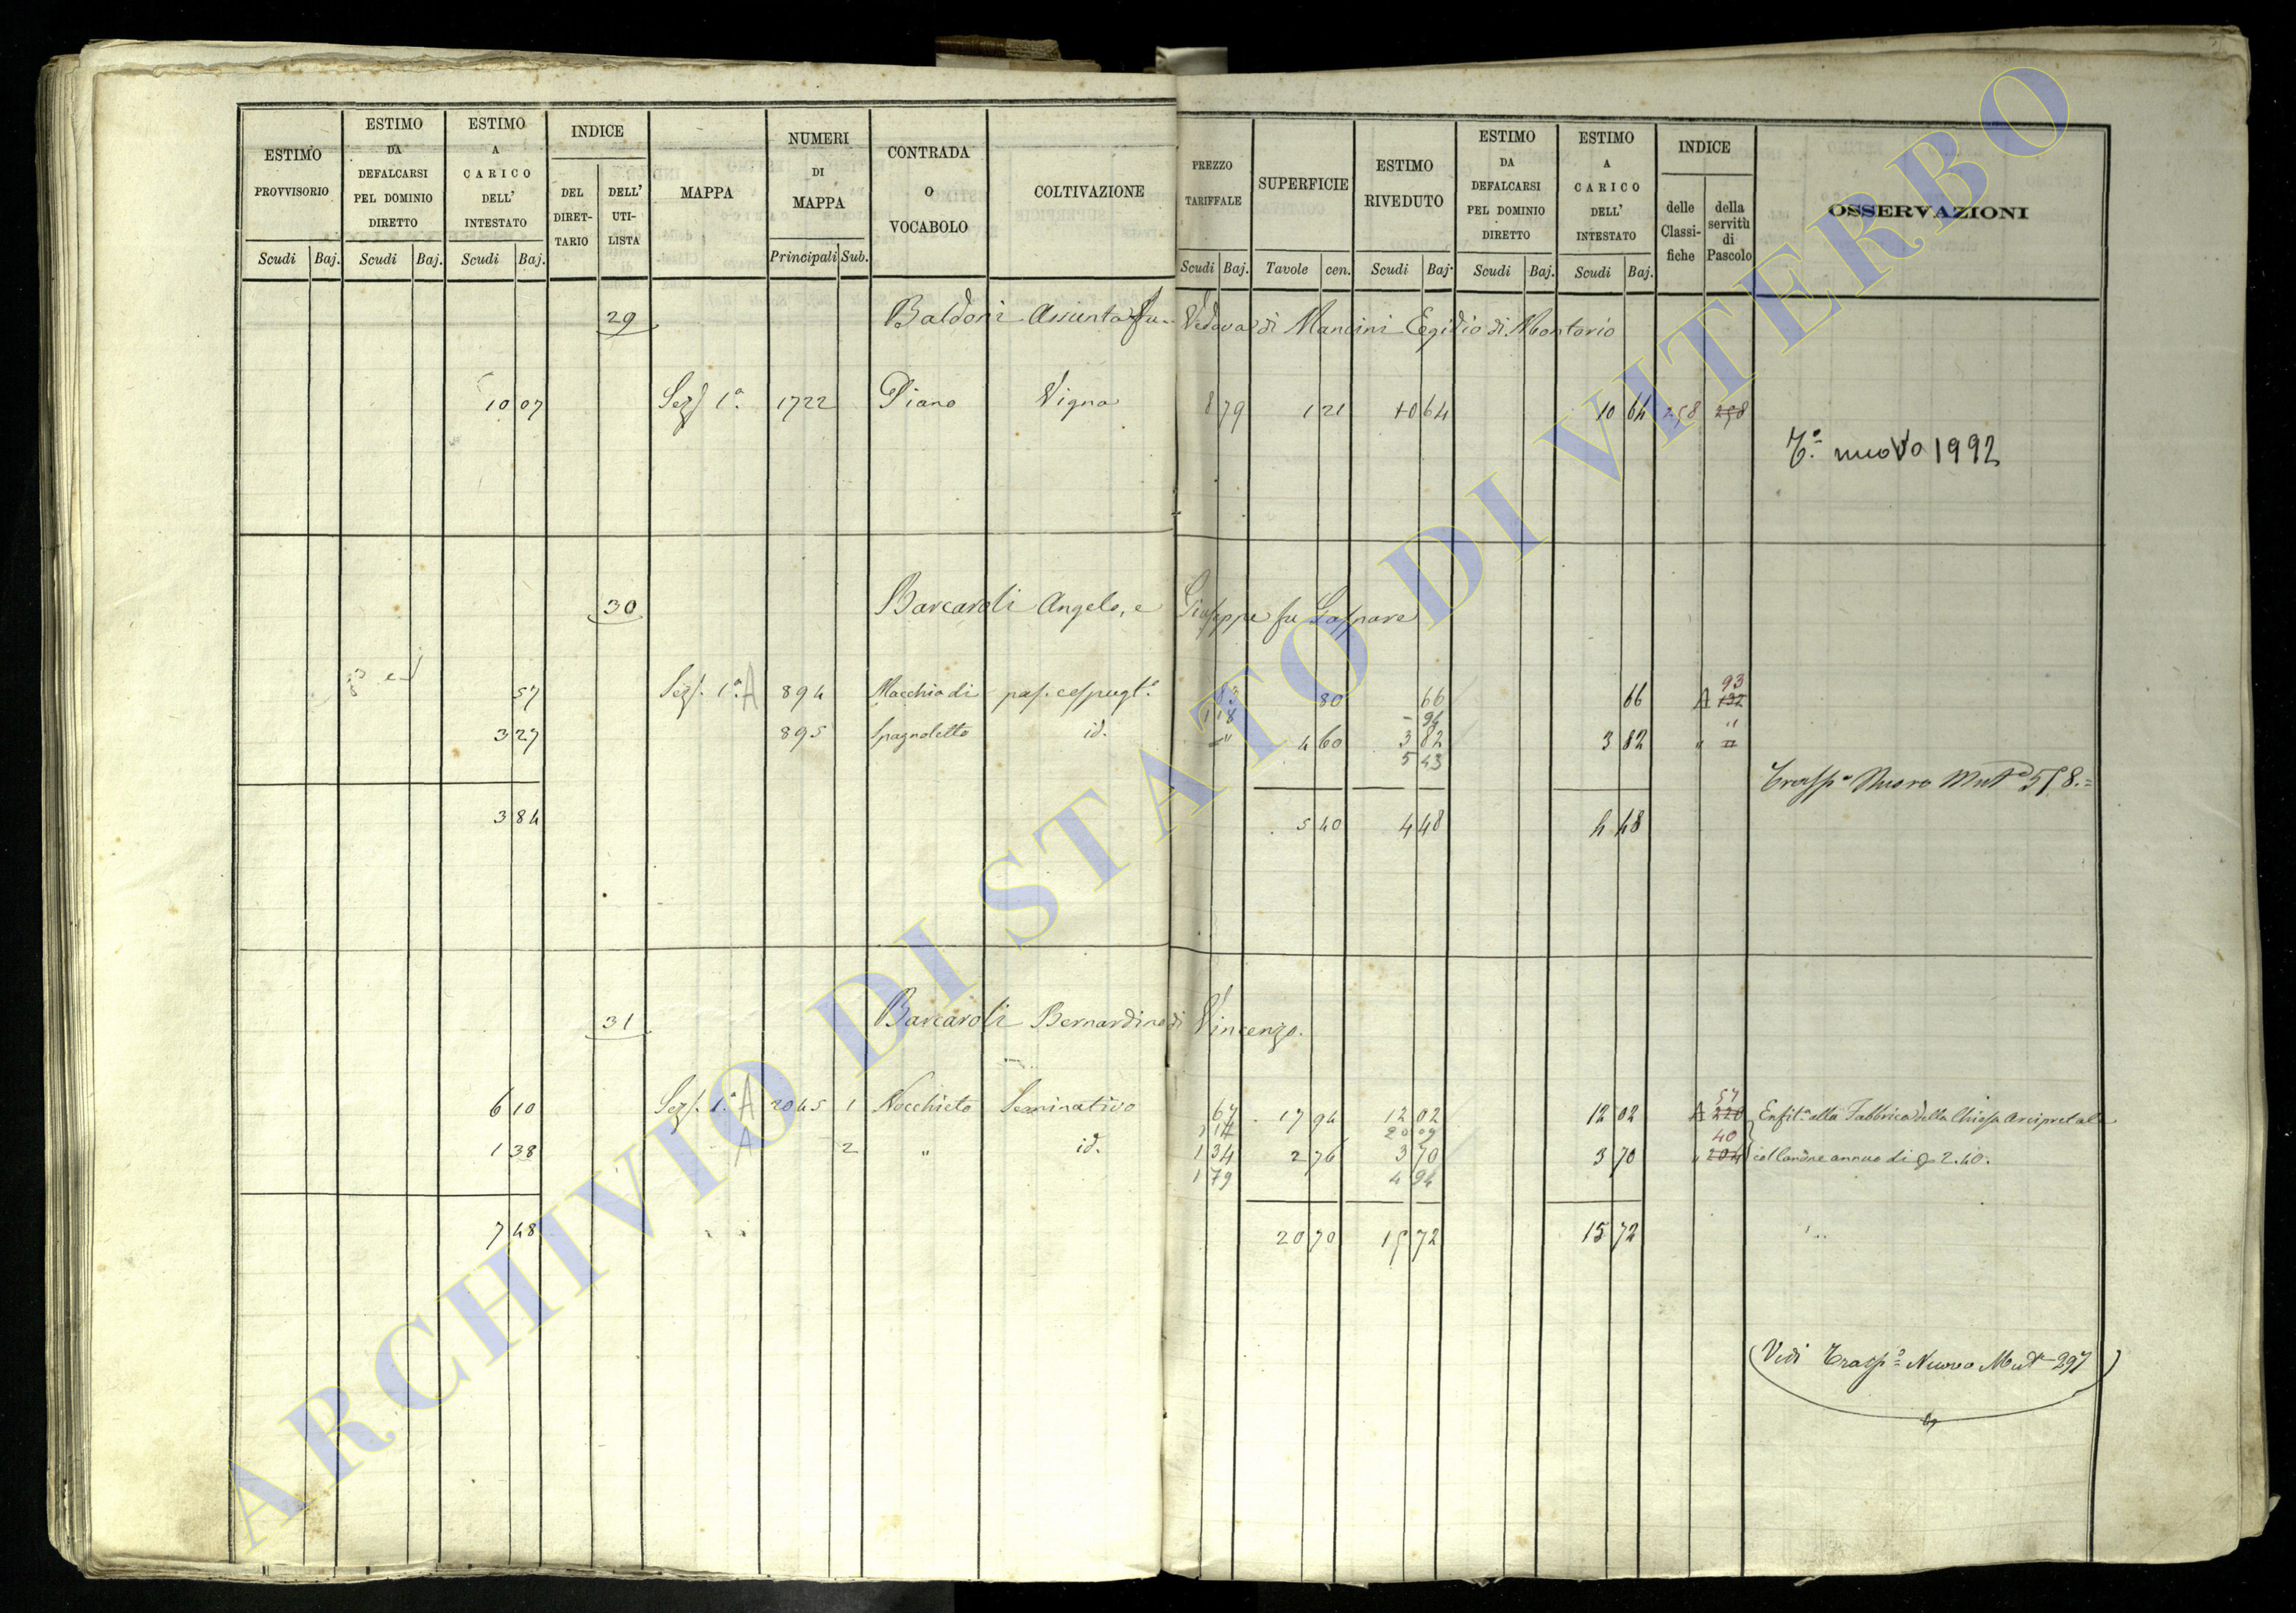 ESTIMO PROVVISORIO
Scudi Baj.
ESTIMO DA DEFALCARSI PEL DOMINIO DIRETTO
Scudi Baj.
ESTIMO A CARICO DELL' INTESTATO
Scudi Baj.
INDICE
DEL DIRET-TARIO
DELL' UTI-LISTA
MAPPA
NUMERI DI MAPPA
Principali Sub.
CONTRADA O VOCABOLO
COLTIVAZIONE
PREZZO TARIFFALE
Scudi Baj.
SUPERFICIE
Tavole cen.
ESTIMO RIVEDUTO
Scudi Baj.
ESTIMO DA DEFALCARSI PEL DOMINIO DIRETTO
Scudi Baj.
ESTIMO A CARICO DELL' INTESTATO
Scudi Baj.
INDICE
delle Classi-fiche
della servitù di Pascolo
OSSERVAZIONI
29 Baldoni Assunta fu Vedova di Mancini Egidio di Montorio
10 07 Sez. 1ª 1722 Piano Vigna 8 79 1 21 10 64 10 64 258 258
T.º nuovo 1992
30 Barcaroli Angelo, e Giuseppe fu Gaspare
57 Sez. 1ª A 894 Macchia di pas. cespugl.º 83 80 66 66 A 132 93
1 18 94
3 27 895 Spagnoletto id. " 4 60 3 82 3 82 " "
5 43
Trasp.º Nuovo Mut.e 558.=
3 84 5 40 4 48 4 48
31 Barcaroli Bernardino di Vincenzo.
6 10 Sez. 1ª A 2045 1 Nocchieto Seminativo 67 17 94 12 02 12 02 A 220 57 Enfit.ª alla Fabbrica della Chiesa Arcipretale
20 09
1 38 A 2 " id. 1 34 2 76 3 70 3 70 " 204 40 coll'annuo di 2.40.
1 79 4 94
7 48 20 70 15 72 15 72
(Vidi Trasp.º Nuovo Mut.e 297)
ARCHIVIO DI STATO DI VITERBO